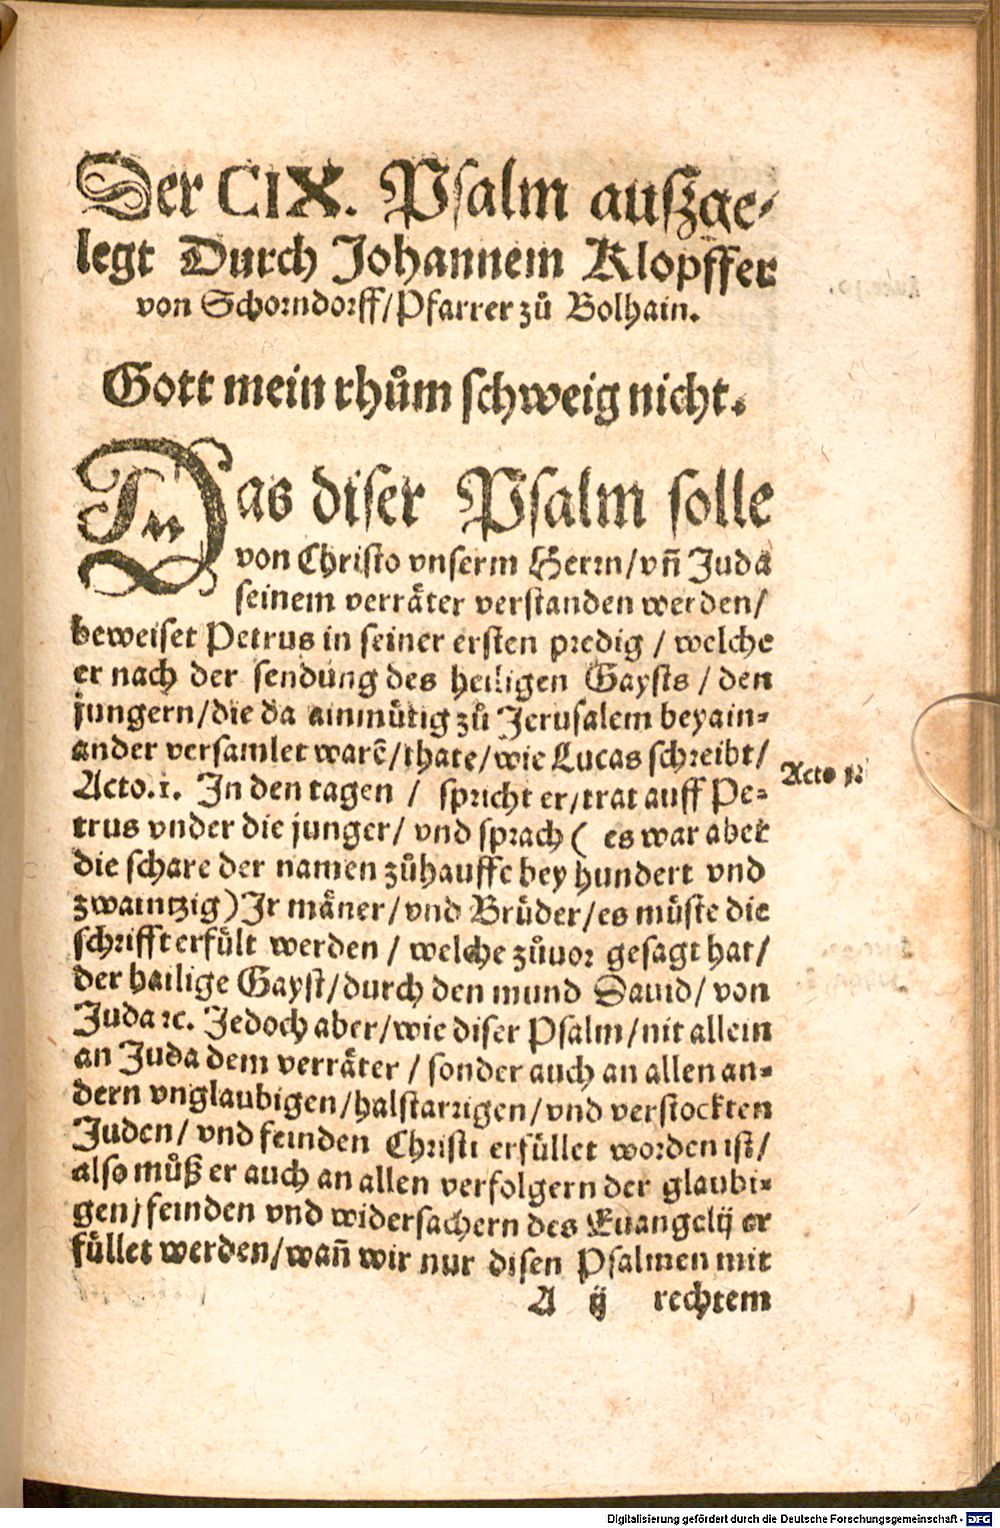 Der CIX. Psalm auszge-
legt Durch Johannem Klopffer
von Schorndorff/Pfarrer zů Bolhain.
Gott mein rhům schweig nicht.
Das diser Psalm solle
von Christo vnserm Herrn/vñ Juda
seinem verräter verstanden werden/
beweiset Petrus in seiner ersten predig / welche
er nach der sendung des heiligen Gaysts / den
jungern/die da ainmütig zů Jerusalem beyain-
ander versamlet warẽ/thate/wie Lucas schreibt/
Acto.1. In den tagen / spricht er/trat auff Pe-
trus vnder die junger/ vnd sprach ( es war aber
die schare der namen zůhauffe bey hundert vnd
zwaintzig) Ir mäner/vnd Brüder/es müste die
schrifft erfült werden / welche zůuor gesagt hat/
der hailige Gayst/durch den mund Dauid/ von
Juda ꝛc. Jedoch aber/wie diser Psalm/nit allein
an Juda dem verräter / sonder auch an allen an-
dern vnglaubigen/halstarrigen/vnd verstockten
Juden/ vnd feinden Christi erfüllet worden ist/
also můß er auch an allen verfolgern der glaubi-
gen/feinden vnd widersachern des Euangelij er
füllet werden/wañ wir nur disen Psalmen mit
A ij rechtem
Acto
Digitalisierung gefördert durch die Deutsche Forschungsgemeinschaft - DFG